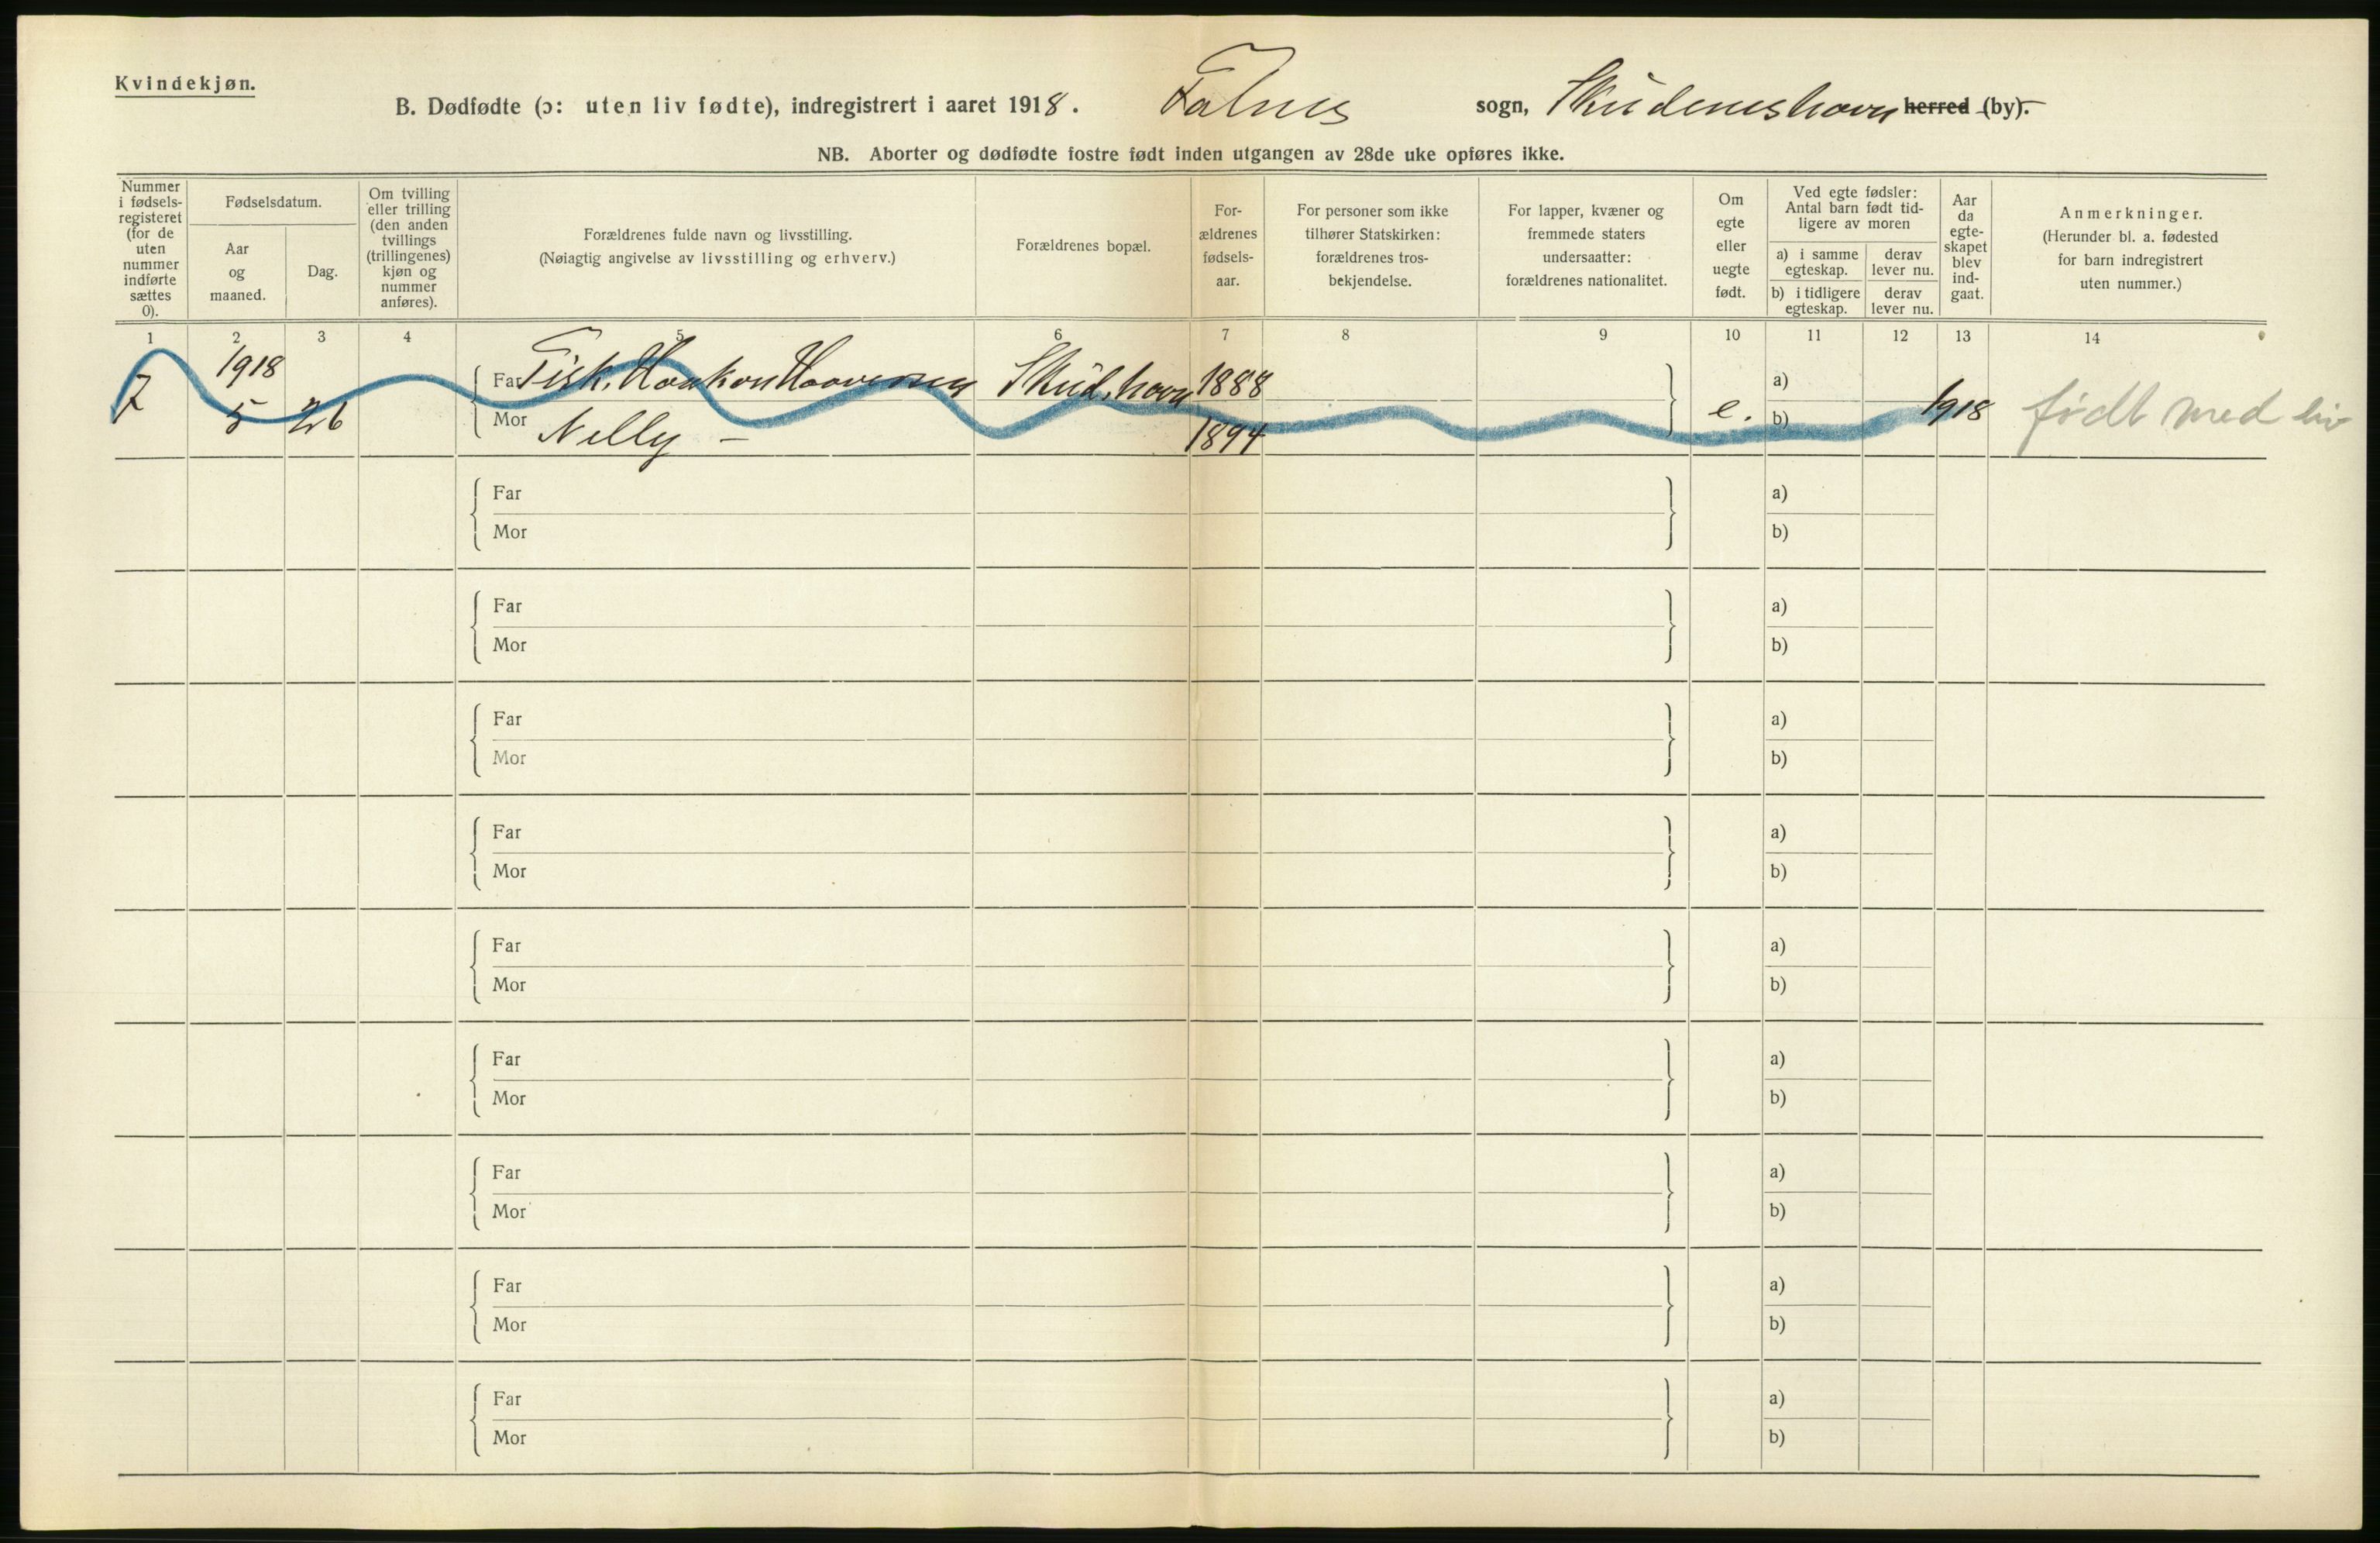 Kvindekjøn.
B. Dødfødte (ɔ: uten liv fødte), indregistrert i aaret 1918. Falnes sogn, Skudeneshavn herred (by).
NB. Aborter og dødfødte fostre født inden utgangen av 28de uke opføres ikke.
Nummer i fødsels-registeret (for de uten nummer indførte sættes 0).
Fødselsdatum.
Aar og maaned.
Dag.
Om tvilling eller trilling (den anden tvillings (trillingenes) kjøn og nummer anføres).
Forældrenes fulde navn og livsstilling.
(Nøiagtig angivelse av livsstilling og erhverv.)
Forældrenes bopæl.
For-ældrenes fødsels-aar.
For personer som ikke tilhører Statskirken: forældrenes tros-bekjendelse.
For lapper, kvæner og fremmede staters undersaatter: forældrenes nationalitet.
Om egte eller uegte født.
Ved egte fødsler: Antal barn født tid-ligere av moren
a) i samme egteskap.
derav lever nu.
b) i tidligere egteskap.
derav lever nu.
Aar da egte-skapet blev ind-gaat.
Anmerkninger.
(Herunder bl. a. fødested for barn indregistrert uten nummer.)
1 2 3 4 5 6 7 8 9 10 11 12 13 14
7 1918 5 26 Far Fisk. Haakon Haaversen Skud.havn 1888 e. a) 1918 født med liv
Mor Nelly – 1894 b)
Far a)
Mor b)
Far a)
Mor b)
Far a)
Mor b)
Far a)
Mor b)
Far a)
Mor b)
Far a)
Mor b)
Far a)
Mor b)
Far a)
Mor b)
Far a)
Mor b)